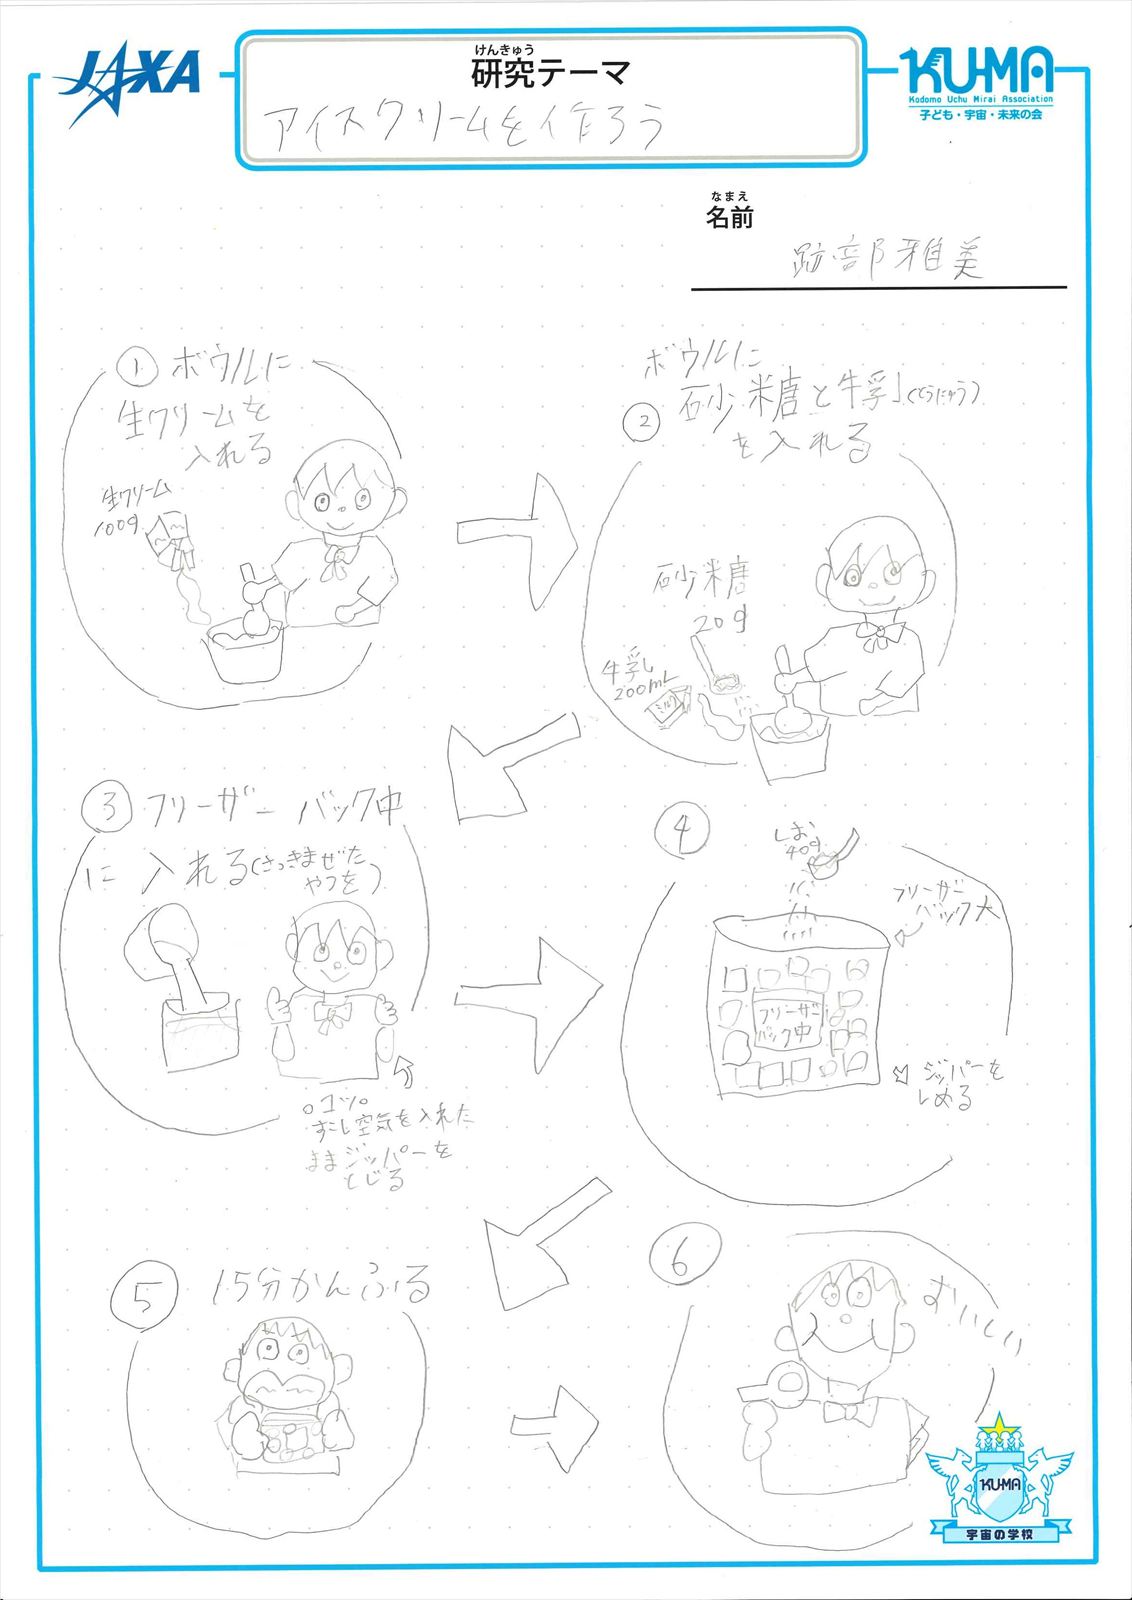 JAXA
けんきゅう
研究テーマ
アイスクリームを作ろう
KU-MA
Kodomo Uchu Mirai Association
子ども・宇宙・未来の会
なまえ
名前
跡部雅美
① ボウルに
生クリームを
入れる
生クリーム
100g
ボウルに
② 砂糖と牛乳(とうにゅう)
を入れる
砂糖
20g
牛乳
200mL
ミルク
③ フリーザーバック中
に入れる(さっきまぜた
やつを)
○コツ○
すこし空気を入れた
ままジッパーを
とじる
④
しお
40g
フリーザー
バック大
フリーザー
バック中
ジッパーを
しめる
⑤ 15分かんふる
⑥
おいしい
KU-MA
宇宙の学校